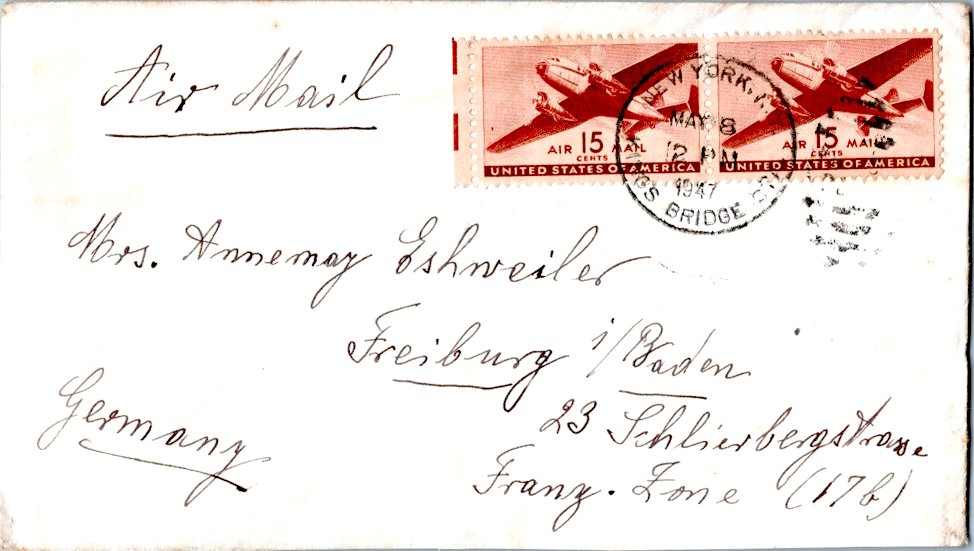 Air Mail
AIR 15 MAIL
CENTS
UNITED STATES OF AMERICA
AIR 15 MAIL
CENTS
UNITED STATES OF AMERICA
NEW YORK, N.
MAY 8
12 PM
1947
KINGS BRIDGE STA
Mrs. Annemay Eshweiler
Freiburg i/Baden
23 Schlierbergstrasse
Franz. Zone (17b)
Germany